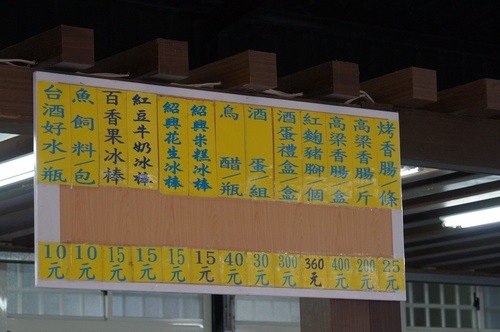 烤香腸/條
高梁香腸/斤
高梁香腸/盒
紅麴豬腳/個
酒蛋禮盒/盒
酒蛋/組
烏醋/瓶
紹興米糕冰棒
紹興花生冰棒
紅豆牛奶冰棒
百香果冰棒
魚飼料/包
台酒好水/瓶
10元
10元
15元
15元
15元
15元
40元
30元
300元
360元
400元
200元
25元